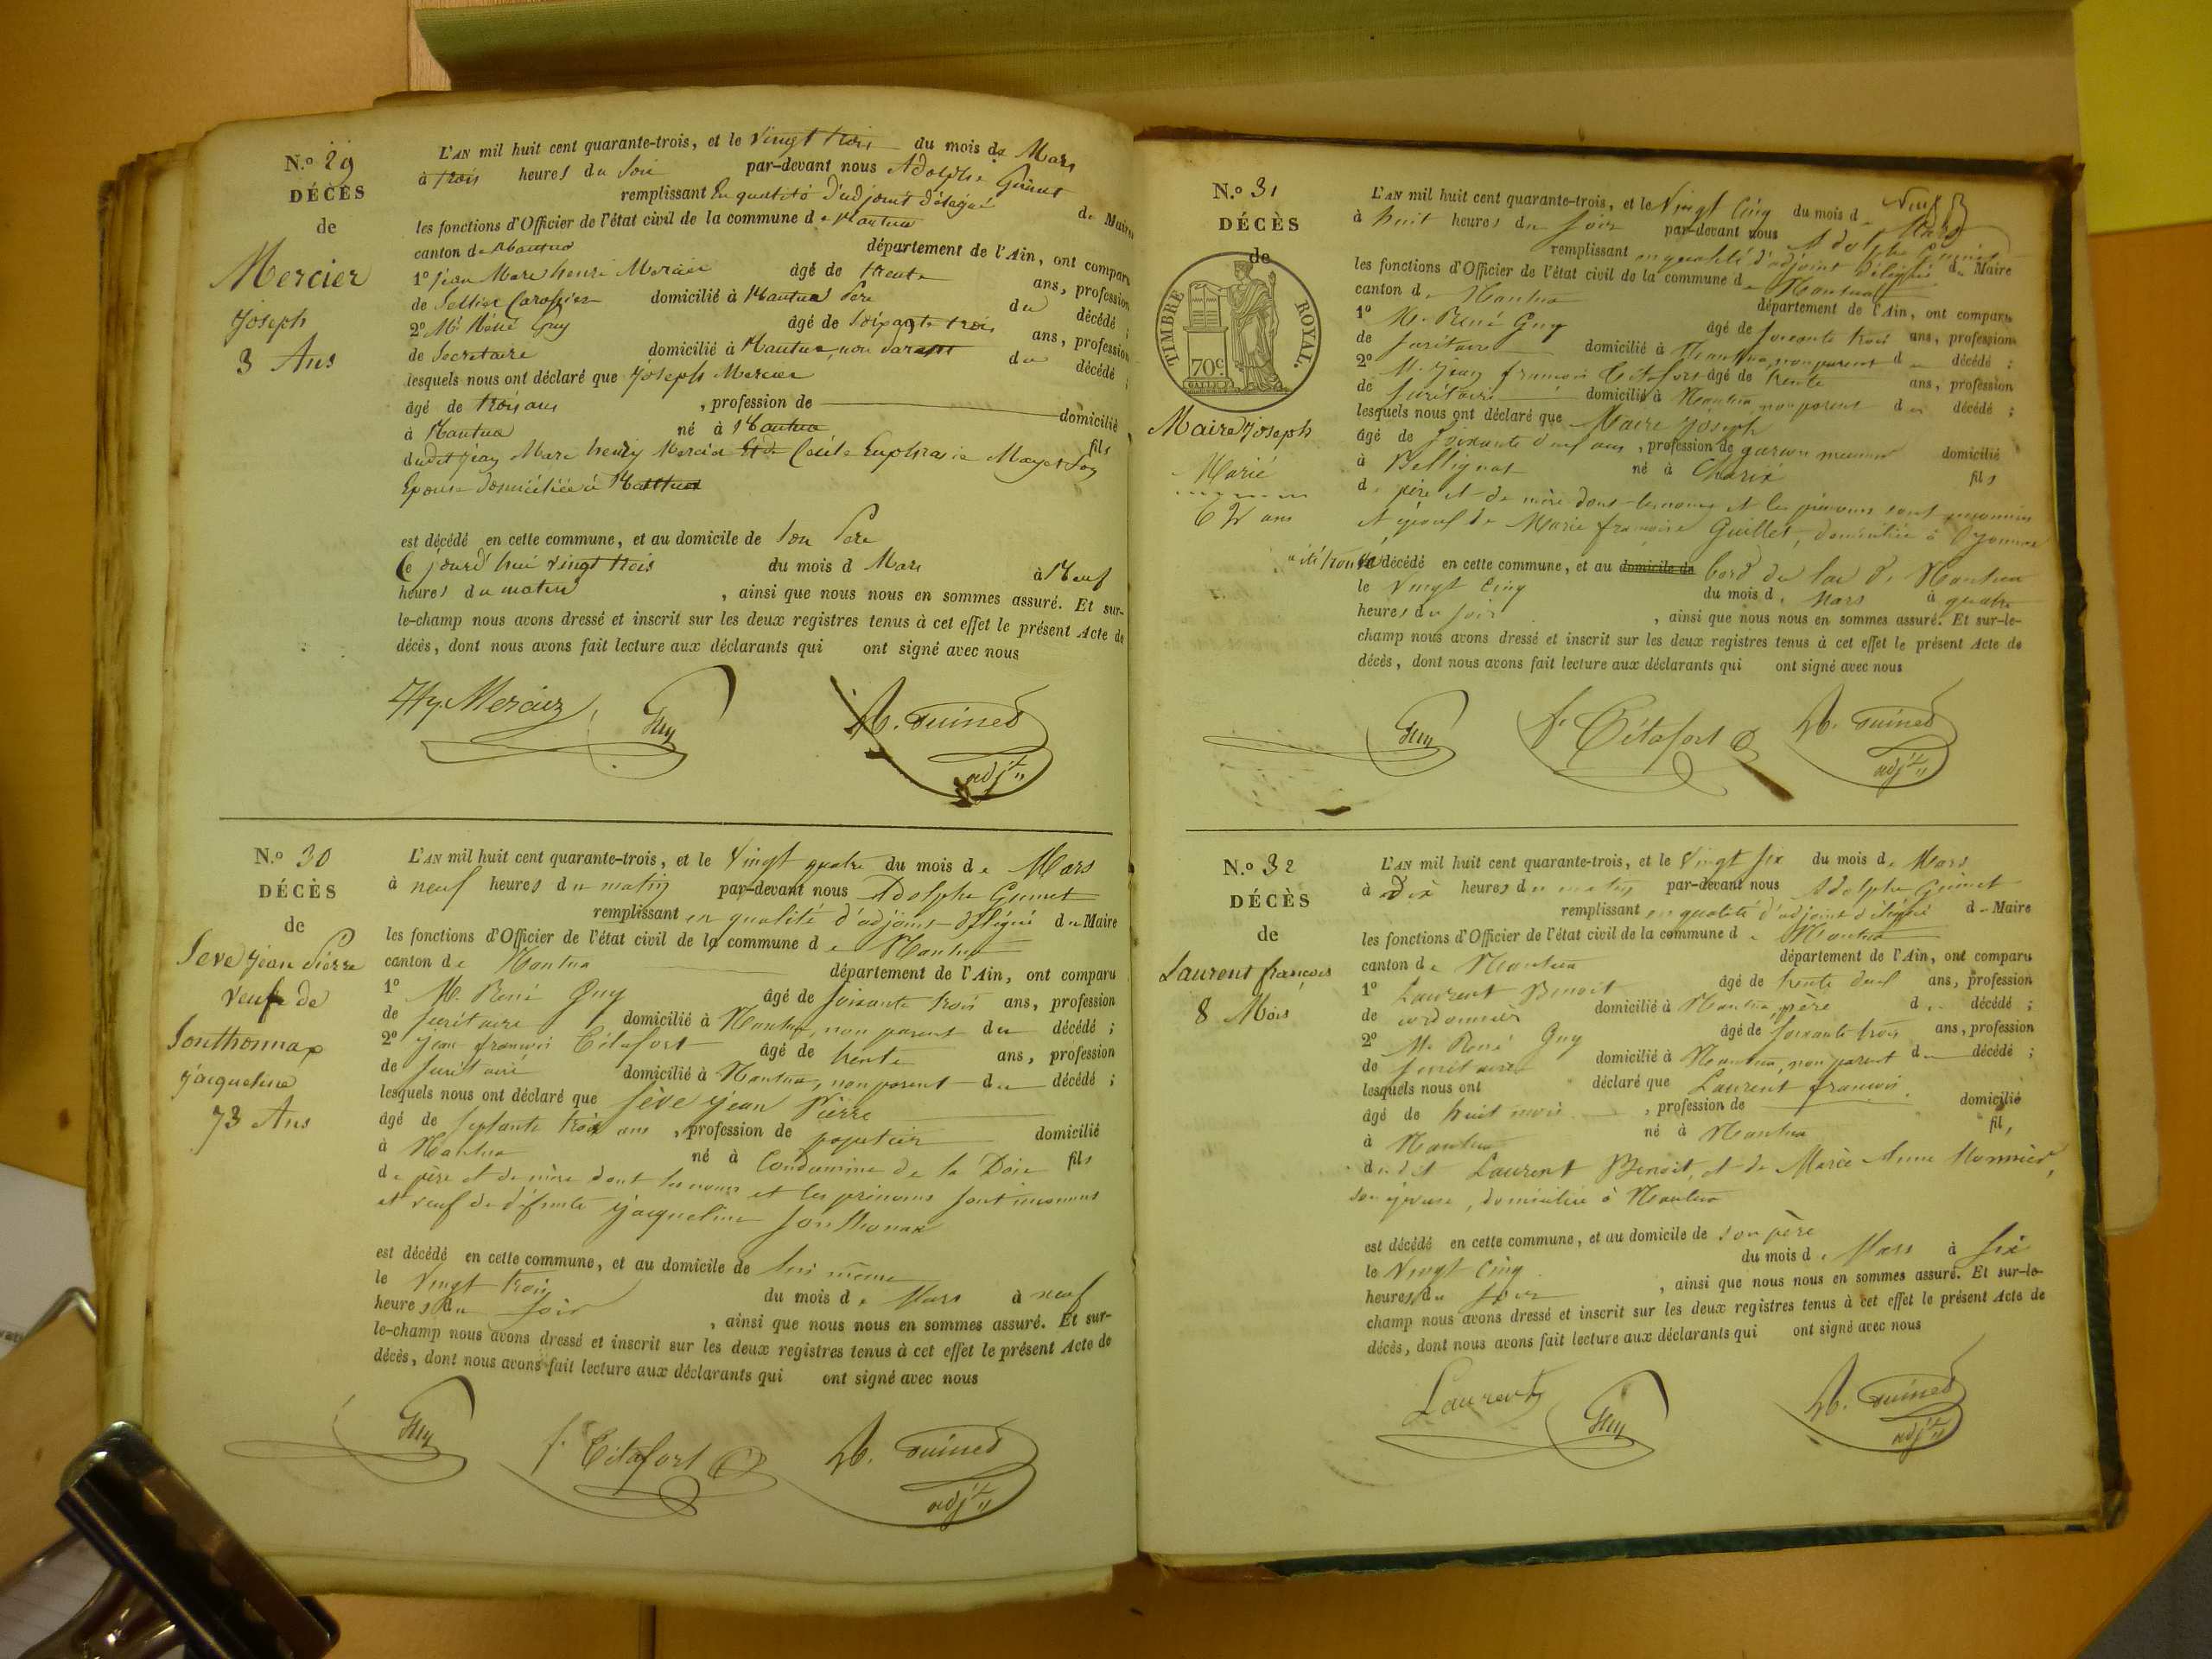 N.º 29
DÉCÈS
de
Mercier
Joseph
3 Ans
L'AN mil huit cent quarante-trois, et le Vingt trois du mois de Mars
à trois heures du Soir par-devant nous Adolphe Guinet
remplissant En qualité d'adjoint délégué du Maire
les fonctions d'Officier de l'état civil de la commune de Nantua
canton de Nantua département de l'Ain, ont comparu
1º Jean Marc henri Mercier âgé de trente ans, profession
de Sellier Carossier domicilié à Nantua Père du décédé ;
2º Mr Réné Guy âgé de Soixante trois ans, profession
de Secretaire domicilié à Nantua, non parent du décédé ;
lesquels nous ont déclaré que Joseph Mercier
âgé de trois ans , profession de domicilié
à Nantua né à Nantua fils
dudit Jean Marc henry Mercier Et de Cécile Euphrasie Son
Epouse domiciliée à Nantua
est décédé en cette commune, et au domicile de Son Père
Ce jourd'hui vingt trois du mois d Mars à Neuf
heures du matin , ainsi que nous nous en sommes assuré. Et sur-
le-champ nous avons dressé et inscrit sur les deux registres tenus à cet effet le présent Acte de
décès, dont nous avons fait lecture aux déclarants qui ont signé avec nous
Hy Mercier Guy A. Guinet
adjt
N.º 30
DÉCÈS
de
Seve jean Pierre
veuf de
Sonthonnax
jacqueline
73 Ans
L'AN mil huit cent quarante-trois, et le Vingt quatre du mois de Mars
à neuf heures du matin par-devant nous Adolphe Guinet
remplissant en qualité d'adjoint délégué du Maire
les fonctions d'Officier de l'état civil de la commune de Nantua
canton de Nantua département de l'Ain, ont comparu
1º M. René Guy âgé de soixante trois ans, profession
de secrétaire domicilié à Nantua, non parent du décédé ;
2º jean françois Cétafort âgé de trente ans, profession
de secrétaire domicilié à Nantua, non parent du décédé ;
lesquels nous ont déclaré que Seve jean Pierre
âgé de septante trois ans , profession de papetier domicilié
à Nantua né à Condamine de la Doie fils
de père et de mère dont les noms et les prénoms sont inconnus
et veuf de défunte jacqueline Sonthonax
est décédé en cette commune, et au domicile de lui même
le Vingt trois du mois de Mars à neuf
heures du soir , ainsi que nous nous en sommes assuré. Et sur-
le-champ nous avons dressé et inscrit sur les deux registres tenus à cet effet le présent Acte de
décès, dont nous avons fait lecture aux déclarants qui ont signé avec nous
Guy f. Cétafort A. Guinet
adjt
N.º 31
DÉCÈS
de
TIMBRE ROYAL.
70c.
Maire Joseph
Marié
62 ans
L'AN mil huit cent quarante-trois, et le Vingt Cinq du mois d Mars
à huit heures du soir par-devant nous Adolphe Guinet
remplissant en qualité d'adjoint délégué du Maire
les fonctions d'Officier de l'état civil de la commune de Nantua
canton de Nantua département de l'Ain, ont comparu
1º M. René Guy âgé de soixante trois ans, profession
de secrétaire domicilié à Nantua, non parent du décédé ;
2º M. jean francois Cétafort âgé de trente ans, profession
de secrétaire domicilié à Nantua, non parent du décédé ;
lesquels nous ont déclaré que Maire joseph
âgé de soixante deux ans , profession de garcon meunier domicilié
à Bellignat né à Charix fils
de père et de mère dont les noms et les prénoms sont inconnus
et époux de Marie francoise Guillet, domiciliée à Oyonnax
a été trouvé décédé en cette commune, et au domicile de bord du lac de Nantua
le Vingt Cinq du mois de Mars à quatre
heures du soir , ainsi que nous nous en sommes assuré. Et sur-le-
champ nous avons dressé et inscrit sur les deux registres tenus à cet effet le présent Acte de
décès, dont nous avons fait lecture aux déclarants qui ont signé avec nous
Guy f. Cétafort A. Guinet
adjt
N.º 32
DÉCÈS
de
Laurent françois
8 Mois
L'AN mil huit cent quarante-trois, et le Vingt six du mois de Mars
à Dix heures du matin par-devant nous Adolphe Guinet
remplissant en qualité d'adjoint délégué du Maire
les fonctions d'Officier de l'état civil de la commune de Nantua
canton de Nantua département de l'Ain, ont comparu
1º Laurent Benoit âgé de trente deux ans, profession
de cordonnier domicilié à Nantua, père du décédé ;
2º M. René Guy âgé de soixante trois ans, profession
de secrétaire domicilié à Nantua, non parent du décédé ;
lesquels nous ont déclaré que Laurent francois
âgé de huit mois , profession de domicilié
à Nantua né à Nantua fils
dudit Laurent Benoit, et de Marie Anne Monnier,
son épouse, domiciliée à Nantua
est décédé en cette commune, et au domicile de son père
le Vingt Cinq du mois de Mars à six
heures du soir , ainsi que nous nous en sommes assuré. Et sur-le-
champ nous avons dressé et inscrit sur les deux registres tenus à cet effet le présent Acte de
décès, dont nous avons fait lecture aux déclarants qui ont signé avec nous
Laurent Guy A. Guinet
adjt